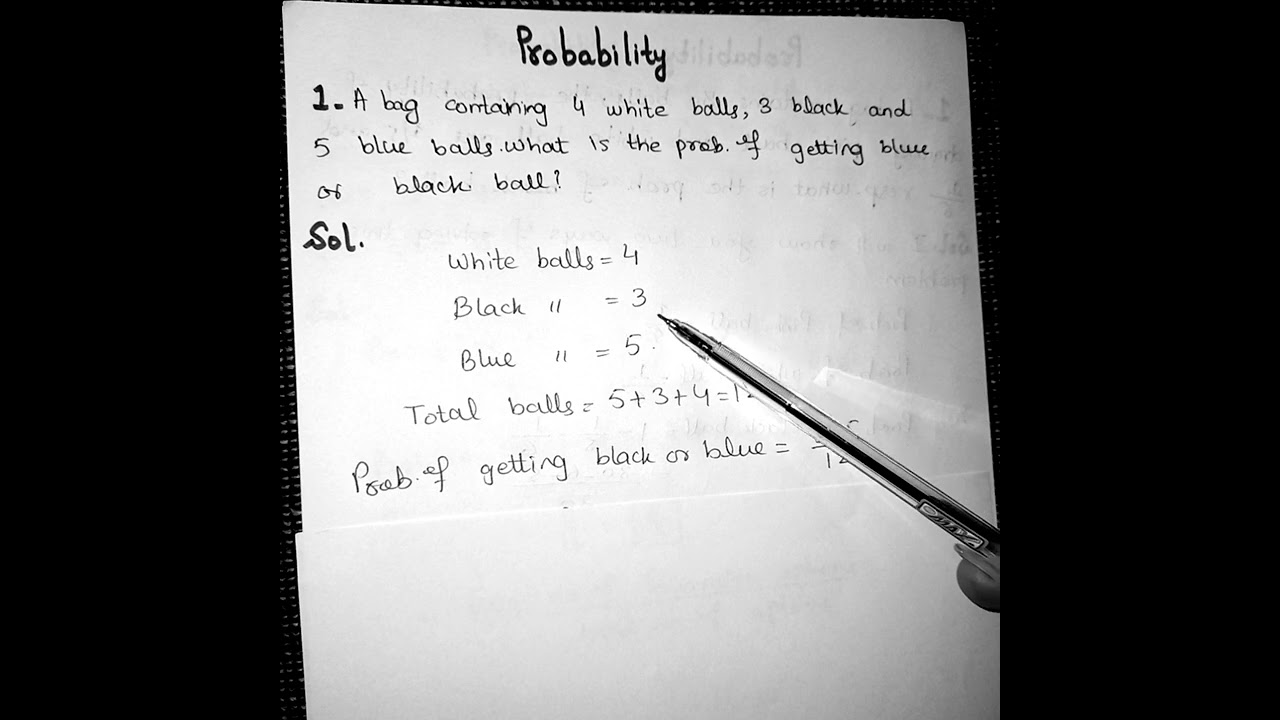 Probability
1. A bag containing 4 white balls, 3 black and
5 blue balls. what is the prob. of getting blue
or black ball?
Sol.
White balls = 4
Black " = 3
Blue " = 5
Total balls = 5+3+4=12
Prob. of getting black or blue = 12